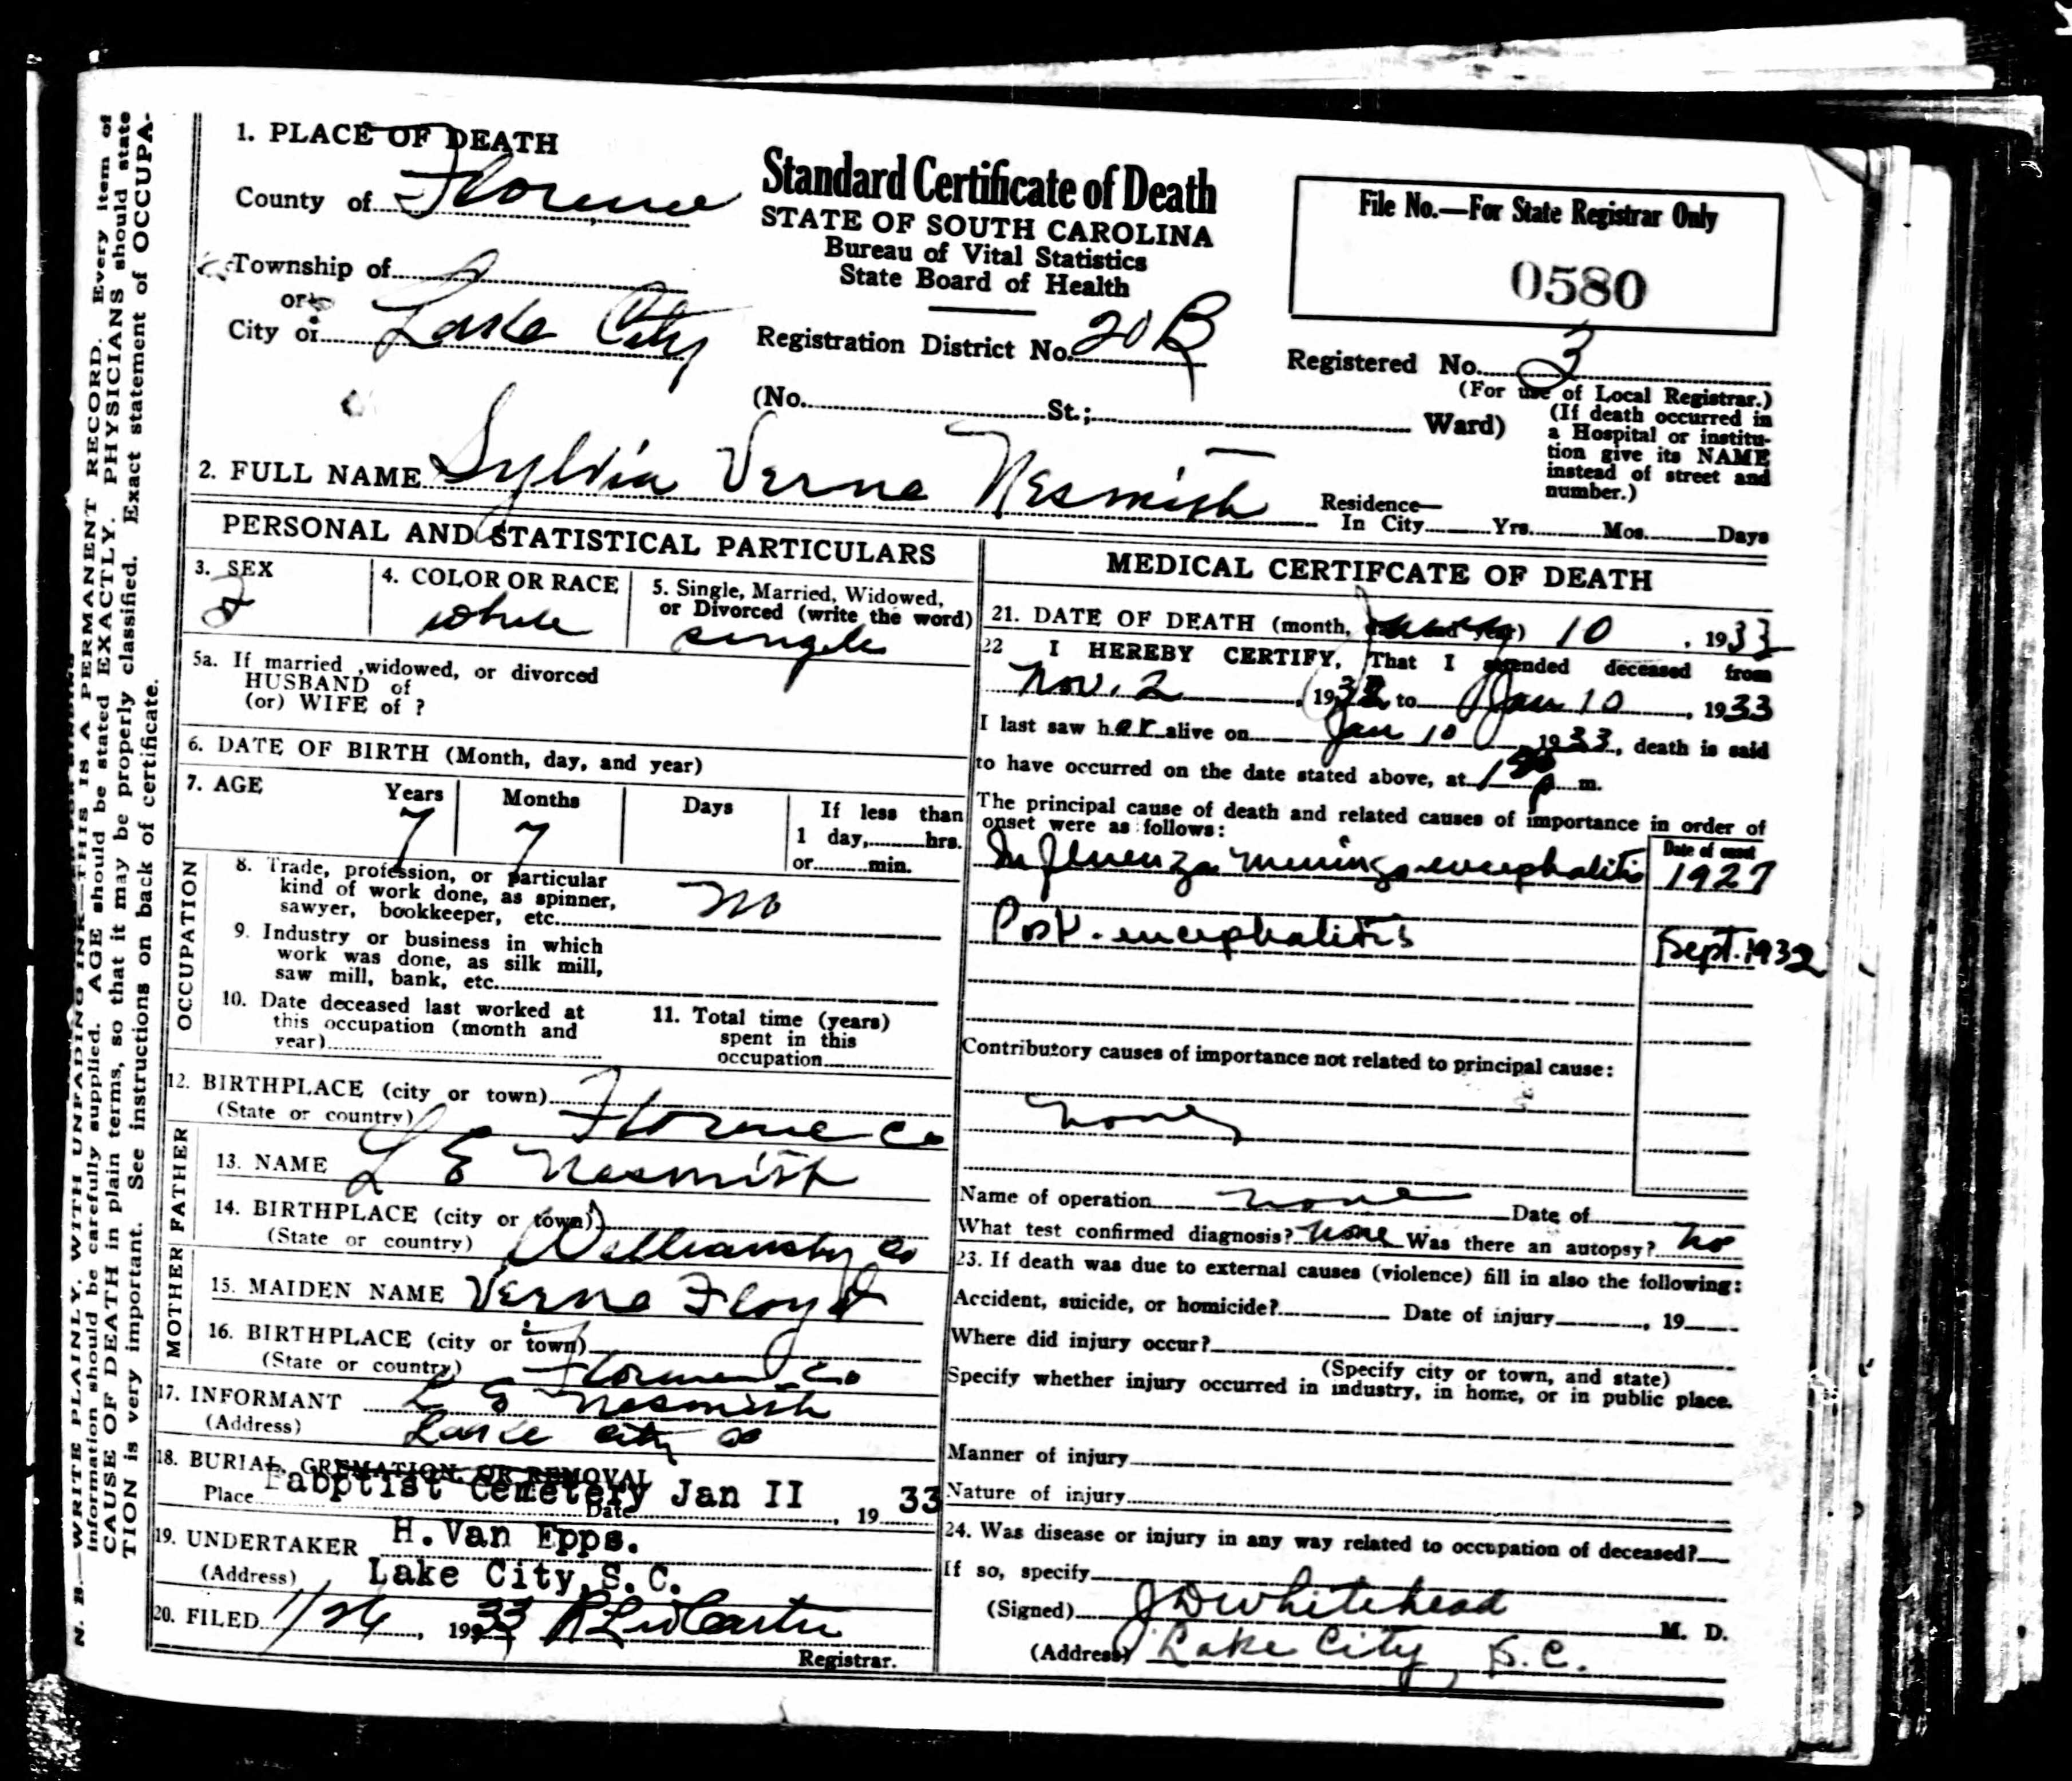 N. B.—WRITE PLAINLY, WITH UNFADING INK—THIS IS A PERMANENT RECORD. Every item of
information should be carefully supplied. AGE should be stated EXACTLY. PHYSICIANS should state
CAUSE OF DEATH in plain terms, so that it may be properly classified. Exact statement of OCCUPA-
TION is very important. See instructions on back of certificate.
1. PLACE OF DEATH
County of Florence
Township of
or
City of Lake City
Standard Certificate of Death
STATE OF SOUTH CAROLINA
Bureau of Vital Statistics
State Board of Health
Registration District No. 20 B
File No.—For State Registrar Only
0580
Registered No. 3
(For use of Local Registrar.)
(No. St.; Ward)
(If death occurred in
a Hospital or institu-
tion give its NAME
instead of street and
number.)
2. FULL NAME Sylvia Verne Nesmith
Residence—
In City Yrs. Mos. Days
PERSONAL AND STATISTICAL PARTICULARS
3. SEX
F
4. COLOR OR RACE
white
5. Single, Married, Widowed,
or Divorced (write the word)
single
5a. If married ,widowed, or divorced
HUSBAND of
(or) WIFE of ?
6. DATE OF BIRTH (Month, day, and year)
7. AGE Years Months Days If less than
7 7 1 day, hrs.
or min.
OCCUPATION
8. Trade, profession, or particular
kind of work done, as spinner,
sawyer, bookkeeper, etc. no
9. Industry or business in which
work was done, as silk mill,
saw mill, bank, etc.
10. Date deceased last worked at
this occupation (month and
year)
11. Total time (years)
spent in this
occupation
12. BIRTHPLACE (city or town)
(State or country) Florence Co
FATHER
13. NAME L E Nesmith
14. BIRTHPLACE (city or town)
(State or country) Williamsburg Co
MOTHER
15. MAIDEN NAME Verne Floyd
16. BIRTHPLACE (city or town)
(State or country) Florence Co
17. INFORMANT L E Nesmith
(Address) Lake City SC
18. BURIAL, CREMATION, OR REMOVAL
Place Babptist Cemetery Date Jan II, 19 33
19. UNDERTAKER H. Van Epps.
(Address) Lake City, S. C.
20. FILED 1/26, 1933
Registrar.
MEDICAL CERTIFCATE OF DEATH
21. DATE OF DEATH (month, day and year) 10, 1933
22 I HEREBY CERTIFY, That I attended deceased from
Nov. 2, 1932 to Jan 10, 1933
I last saw her alive on Jan 10 1933, death is said
to have occurred on the date stated above, at p m.
The principal cause of death and related causes of importance in order of
onset were as follows:
Date of onset
Influenza meningo-encephalitis 1927
Post-encephalitis Sept. 1932
Contributory causes of importance not related to principal cause:
none
Name of operation none Date of
What test confirmed diagnosis? none Was there an autopsy? no
23. If death was due to external causes (violence) fill in also the following:
Accident, suicide, or homicide? Date of injury, 19
Where did injury occur?
(Specify city or town, and state)
Specify whether injury occurred in industry, in home, or in public place.
Manner of injury
Nature of injury
24. Was disease or injury in any way related to occupation of deceased?
If so, specify
(Signed) J D Whitehead M. D.
(Address) Lake City, S. C.